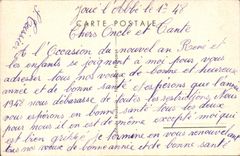 Joué l'abbé le 1er 48
CARTE POSTALE
Chers Oncle et Tante
à l'Occasion du nouvel an René et
les enfants se joignent à moi pour vous
adresser tous nos vœux de bonne et heureuse
année et de bonne santé et espérons que l'année
1948 nous débarasse de toutes les restrictions. nous
vous espérons en bonne santé tous les deux
pour nous il en est de même excepté moi qui
est bien grippé je termine en vous renouvelant
tous nos vœux de bonne année et de bonne santé